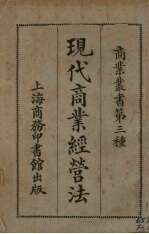 商業叢書第三種
現代商業經營法
上海商務印書館出版